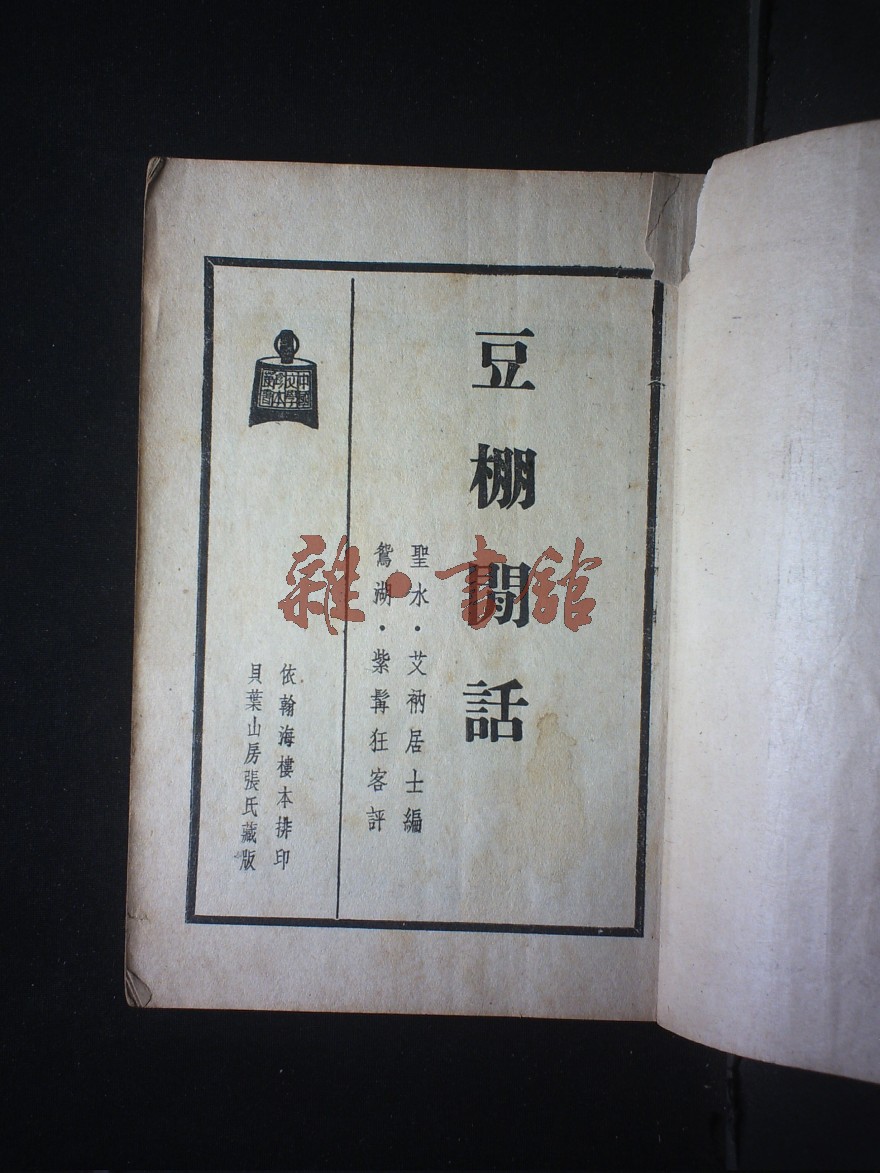 豆棚閒話
聖水·艾衲居士編
鴛湖·紫髯狂客評
依翰海樓本排印
貝葉山房張氏藏版
中國文學珍本叢書
雜·書館